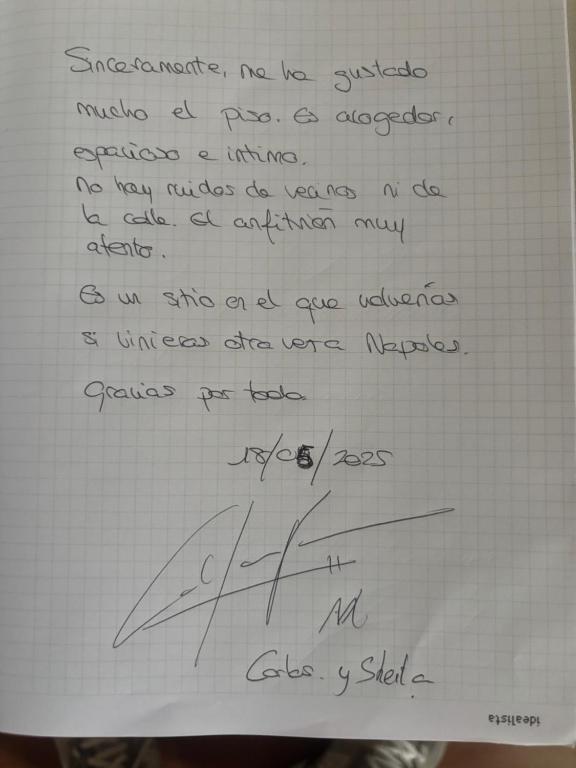 Sinceramente, me ha gustado
mucho el piso. Es acogedor,
espacioso e intimo.
No hay ruidos de vecinos ni de
la calle. El anfitrión muy
atento.
Es un sitio en el que volverías
si vinieras otra vez a Napoles.
Gracias por todo
18/05/2025
Carlos. y Sheila
idealista